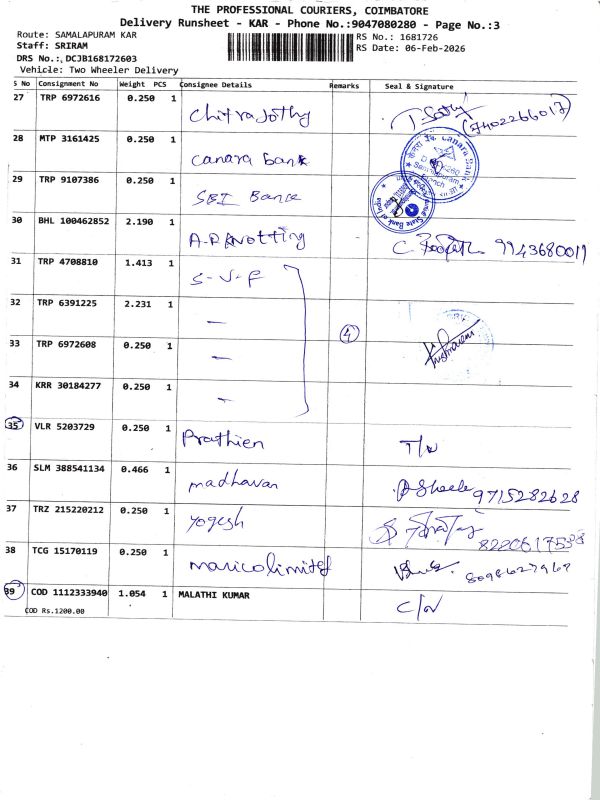 THE PROFESSIONAL COURIERS, COIMBATORE
Delivery Runsheet - KAR - Phone No.:9047080280 - Page No.:3
Route: SAMALAPURAM KAR
RS No.: 1681726
Staff: SRIRAM
RS Date: 06-Feb-2026
DRS No.: DCJB168172603
Vehicle: Two Wheeler Delivery
S No Consignment No Weight PCS Consignee Details Remarks Seal & Signature
27 TRP 6972616 0.250 1 Chitrajothy 7402266017
28 MTP 3161425 0.250 1 Canara bank
29 TRP 9107386 0.250 1 SBI Bance
30 BHL 100462852 2.190 1 A.P Knotting 9943680011
31 TRP 4708810 1.413 1 S-V-F
32 TRP 6391225 2.231 1 —
33 TRP 6972608 0.250 1 — 4
34 KRR 30184277 0.250 1 -
35 VLR 5203729 0.250 1 Prathien T/N
36 SLM 388541134 0.466 1 madhavan 9715282628
37 TRZ 215220212 0.250 1 yogesh
38 TCG 15170119 0.250 1 maricolimited 8098627967
39 COD 1112333940 1.054 1 MALATHI KUMAR C/N
COD Rs.1200.00